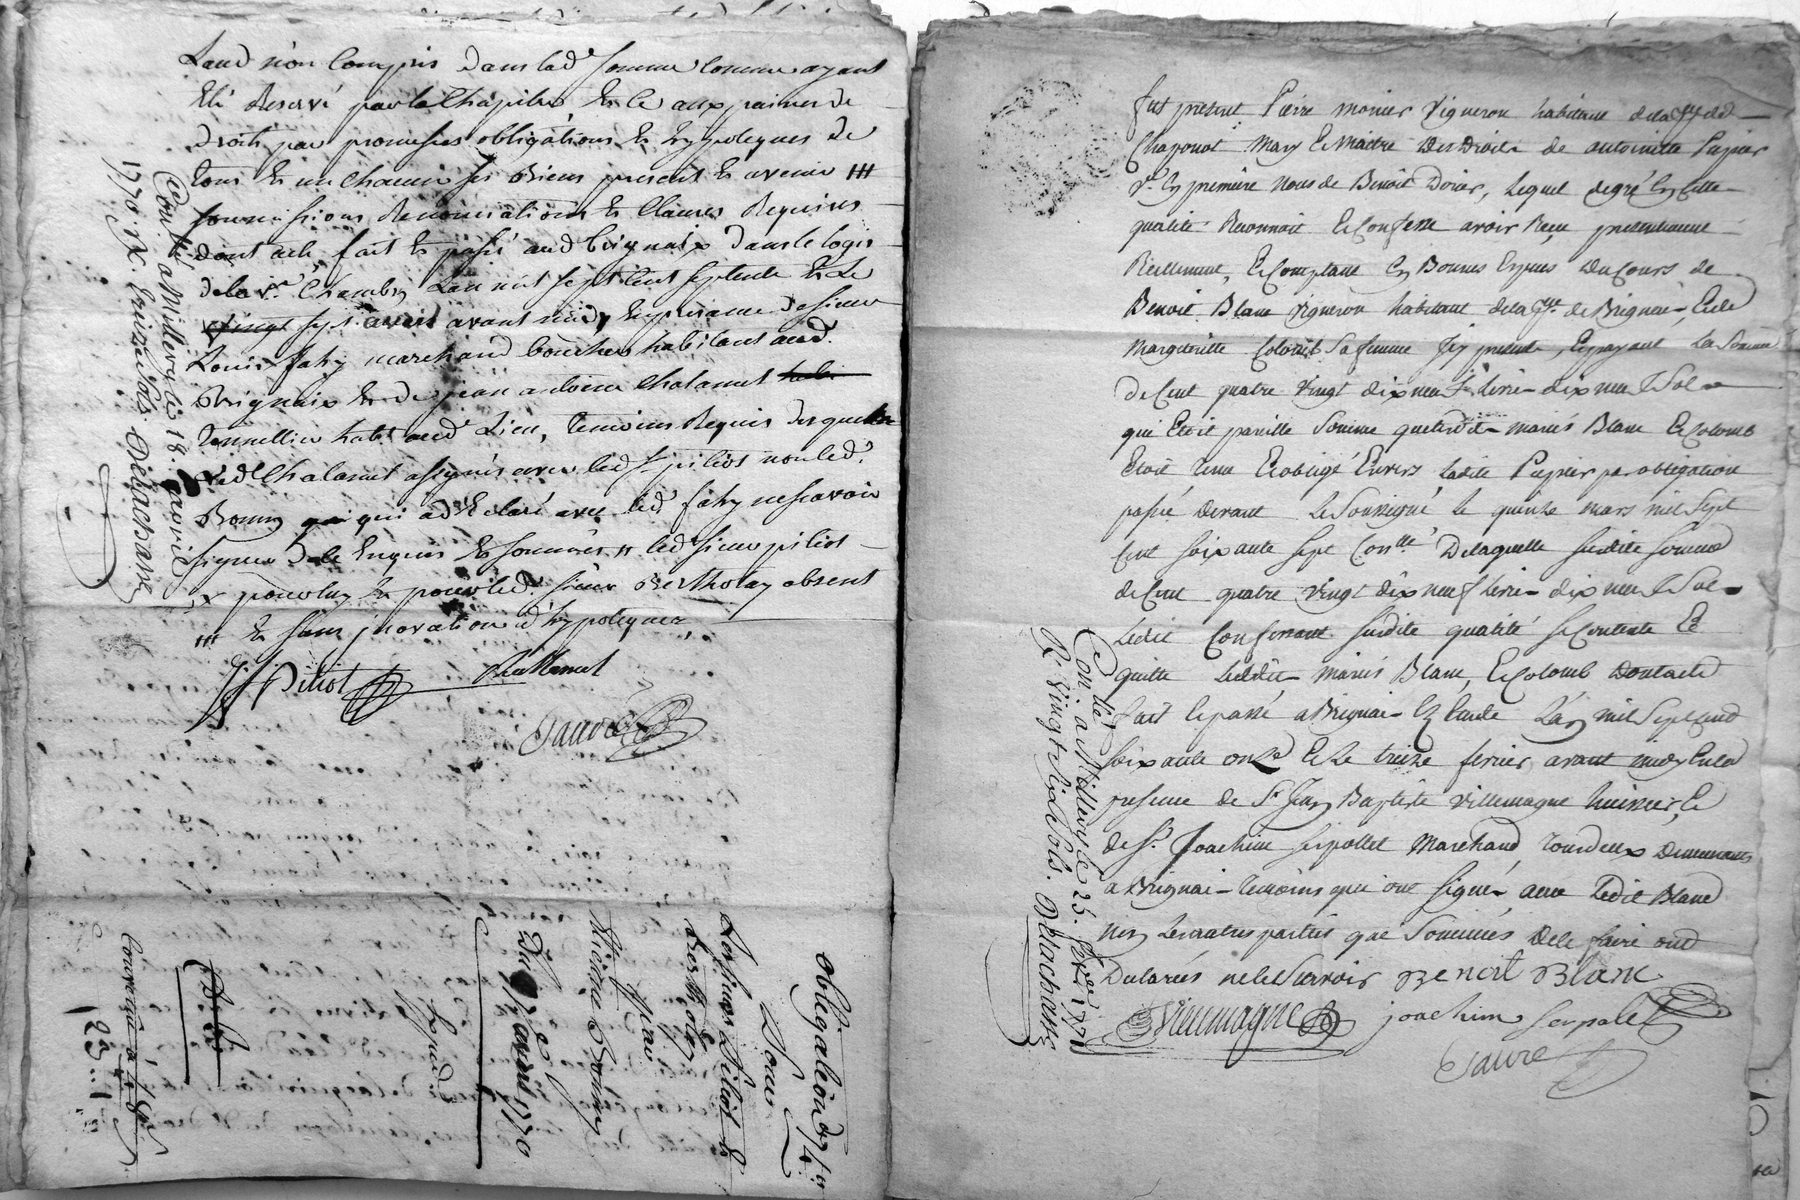 Laud n'on Compris dans lad. somme comme ayant
Été Reservé par le Chapitre Et Ce aux peines de
droits par promesses obligations Et hypoteques de
tous Et un Chacun ses Biens present Et avenir ///
soumissions Renonciations Et Clauses Requises
dont acte, fait Et passé aud Brignaix dans le logis
de la Ve Chambry Lan mil sept Cent septente Et Le
vingt sept avril avant midy En presence de sieur
Louis faby marchand boucher habitant aud.
Brignaix Et de jean antoine Chalamet
Tonnellier habt aud Lieu, temoins Requis desquels
led Chalamet a signé avec led sr piliot non led.
Bonny qui ad Eclaré avec led faby ne scavoir
signer de le Enquis Et sommés // led sieur piliot
x pour luy Et pour led. sieur Bertholay absent
/// Et sans inovation d'hypoteques
Piliot Chalamet
Sauvé
Con.llé a Millery le 18 avril
1770. Rx. treize sols. Delachasse
obligation de 74 ls
Pour
Les sieurs Piliot &
Bertholay
Contre
Etienne Bonny
Du 7e avril 1770
Expedié
Controlle a
123
fut present Pierre monier Vigneron habitant de la psse de
Chaponot Mary Et Maitre Des Droits de antoinette Papier
Ve En premiere noces de Benoit Doriat, Lequel de gré En cette
qualité Reconnoit Et Confesse avoir Reçu presentement
Réellement, Et Comptant En Bonnes Espèces Du Cours de
Benoit Blanc Vigneron habitant de la psse de Brignai Et de
Margueritte Colomb Sa femme Icy presente, Et payant La Somme
De Cent quatre Vingt dix neuf Livres dix neuf Sols
qui Etoit pareille Somme que lesdits mariés Blanc Et Colomb
Etoit tenu Et obligé Envers Ladite Papier par obligation
passée devant Le Soussigné le quinze mars mil Sept
Cent soixante sept Con.llé De laquelle susdite somme
de Cent quatre Vingt dix neuf livres dix neuf Sols
Ledit Confessant susdite qualité se Contente Et
quitte Lesdits mariés Blanc, Et Colomb Dont acte
fait Et passé a Brignai En Etude L'an mil Sept Cend
soixante onze Et Le treize fevrier avant midy En la
presence de Sr Jean Baptiste Villemagne huissier, Et
de Sr. Joachim serpollet Marchand Tondeur Demeurants
a Brignai temoins qui ont signé avec Ledit Blanc
non Les autres parties que Sommés De le faire ont
Déclarés ne le Scavoir Benoit Blanc
Villemagne joachim serpolet
Sauvé
Con.llé a Millery le 25. fevrier 1771
R. vingt six sols. Delachasse